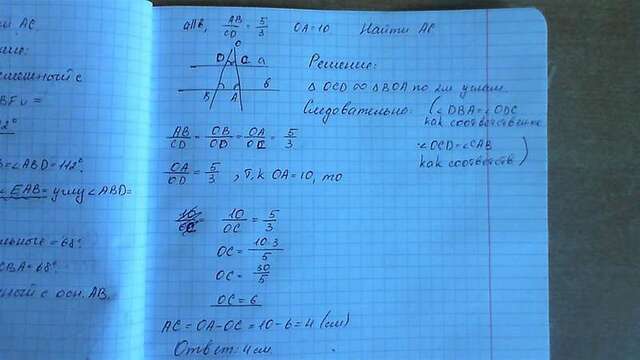 и AC.
ние:
смешный с
BFи =
12°
B=∠ABD=112°
∠EAB= углу ∠ABD=
льное = 68°
CBA=68°
ный с осн. AB.
a||b, AB/CD = 5/3 OA=10 Найти AC
O
D C a
B A b
Решение:
△ OCD ∞ △BOA по 2м углам.
Следовательно: (∠DBA=∠ODC
как соответственно
∠OCD=∠CAB
как соответств)
AB/CD = OB/OD = OA/OC = 5/3
OA/OD = 5/3, т.к OA=10, то
10/OC = 5/3
OC = 10·3/5
OC = 30/5
OC = 6
AC = OA-OC = 10-6=4 (см)
Ответ: 4 см.